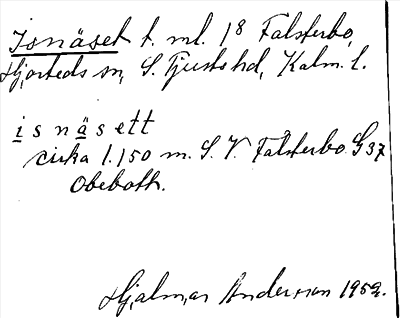 Isnäset t. ml. 1⁸ Falsterbo,
Hjorteds sn, S. Tjusts hd, Kalm. l.
i s n ä s ett
cirka 1.150 m. S. V. Falsterbo G 37
Obeboth.
Hjalmar Anderson 1952.